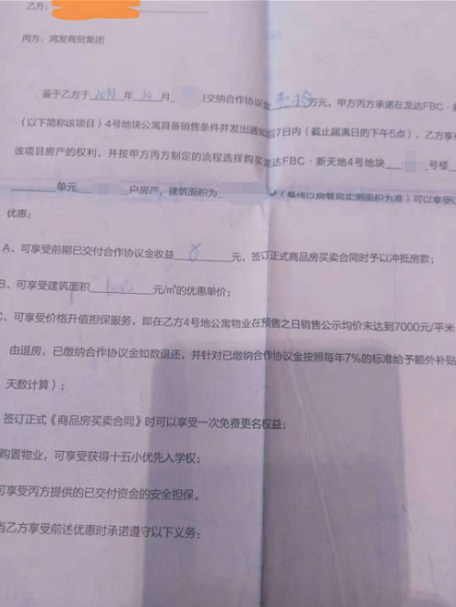 乙方：
丙方：鸿发商贸集团
鉴于乙方于 2014 年 10 月 交纳合作协议金 万元，甲方丙方承诺在龙达FBC·
（以下简称该项目）4号地块公寓具备销售条件并发出通知后7日内（截止届满日的下午5点），乙方享
该项目房产的权利，并按甲方丙方制定的流程选择购买龙达FBC·新天地4号地块 号楼
单元 户房产，建筑面积为 （最终以房管局实测面积为准）可以享受以
优惠：
A、可享受前期已交付合作协议金收益 8 元，签订正式商品房买卖合同时予以冲抵房款；
B、可享受建筑面积 元/㎡的优惠单价；
C、可享受价格升值担保服务，即在乙方4号地公寓物业在预售之日销售公示均价未达到7000元/平米
由退房，已缴纳合作协议金如数退还，并针对已缴纳合作协议金按照每年7%的标准给予额外补贴
天数计算）；
签订正式《商品房买卖合同》时可以享受一次免费更名权益；
购置物业，可享受获得十五小优先入学权；
可享受丙方提供的已交付资金的安全担保。
当乙方享受前述优惠时承诺遵守以下义务：